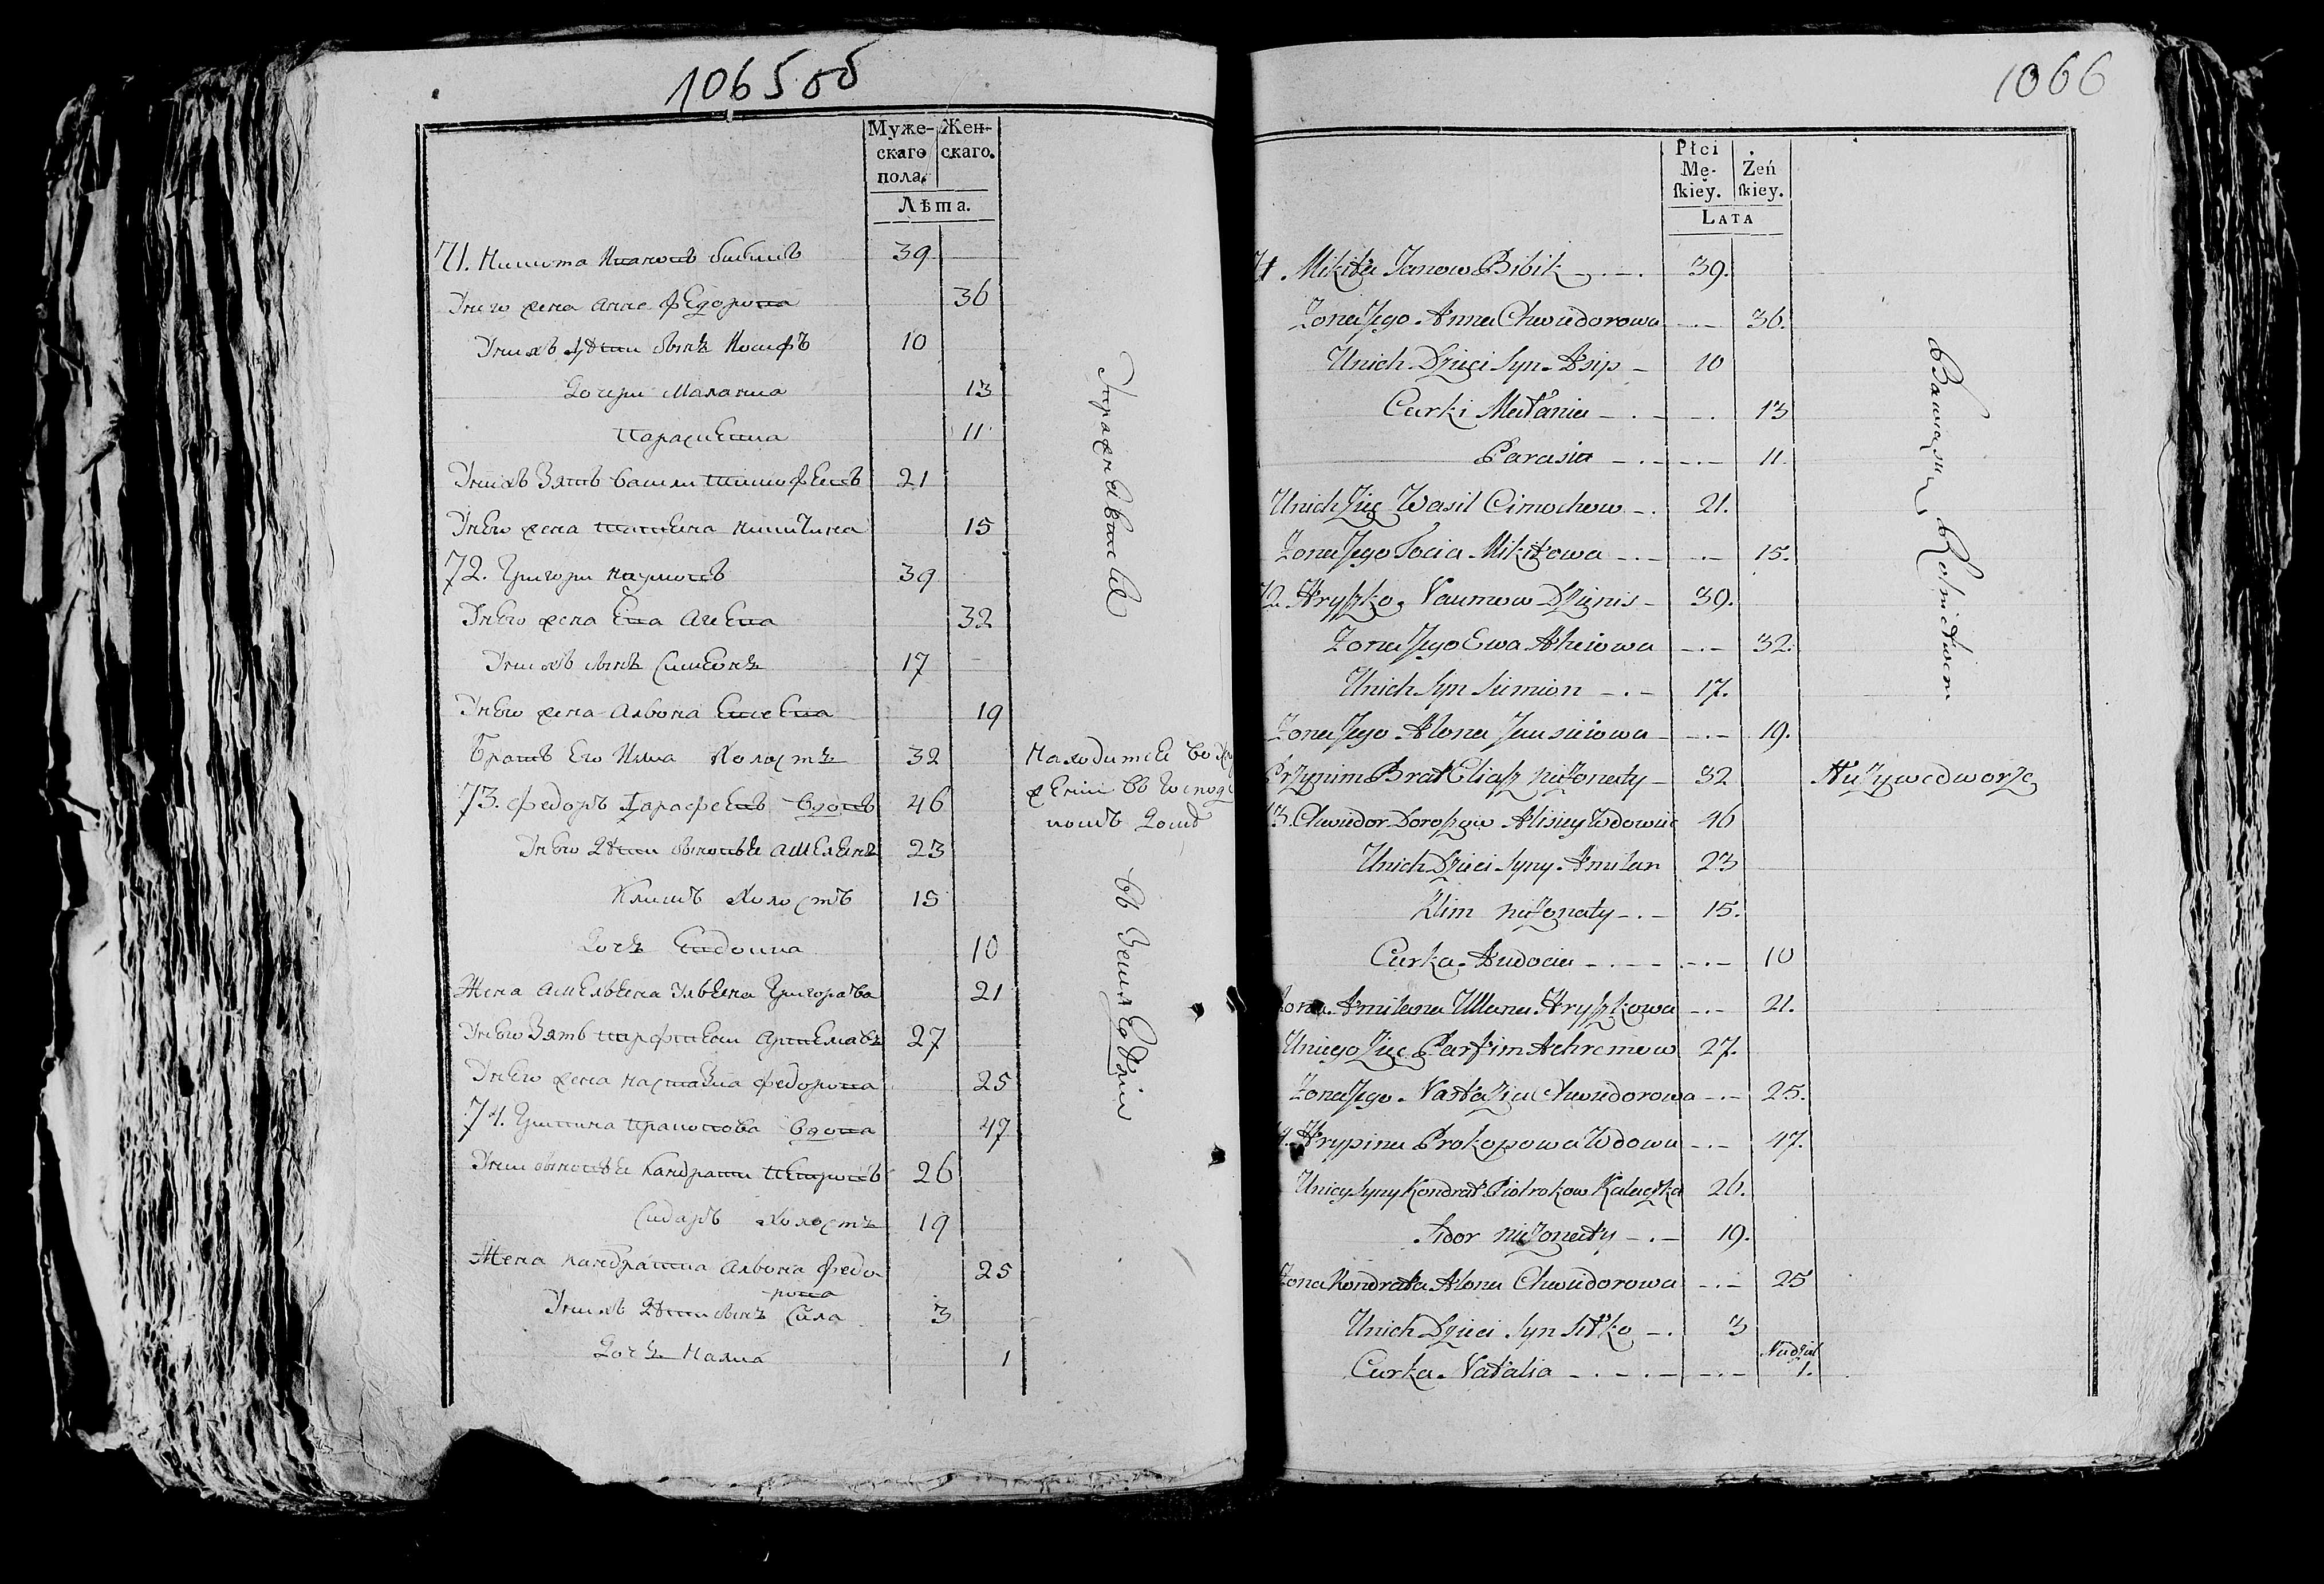 1065 об
Муже- Жен-
скаго скаго.
пола.
Лѣта.
71. Никита Ивановъ бибикъ 39
Унего жена Анна Федорова 36
Унихъ дѣти сынъ Иосифъ 10
Дочери Малания 13
Парасковия 11
Унихъ Зять Васили Тимофеевъ 21
Унево жена Татияна Никитина 15
72. Григори Наумовъ 39
Унево жена Ева 32
Унихъ сынъ Симеонъ 17
Унево жена Алвона Евсеева 19
Братъ Его Илиа Холостъ 32
73. Федоръ Дарофеевъ вдовъ 46
Унево Дѣти сыновьи Амелянъ 23
Климъ Холостъ 15
Дочь Евдокиа 10
Жена Амельяна Ульяна Григорьева 21
Унево Зять Парфиени Артемавъ 27
Унево жена Настасиа Федорова 25
74. Грипина Пракопова вдова 47
Унии сыновьи Кандрати Петровъ 26
Сидаръ Холостъ 19
Жена Кандратиа Алвона Федо-
рова 25
Унихъ Дѣти сынъ Сила 3
Дочь 1
упражнаютьса
Находитса во
въ
домѣ
въ Земледелии
1066
Płci
Mę- Żeń
ſkiey. ſkiey.
LATA
71. Mikita Janow Bibik 39.
Zona Jego Anna Chwiedorowa 36.
Unich Dzieci Syn Asip 10
Curki Małania 13
Parasia 11.
Unich Zięć Wasil Cimochow 21.
Zona Jego Tacia Mikitowa 15.
72. Hryszko Naumow Dzienis 39.
Zona Jego Ewa Aheiowa 32.
Unich Syn Siemion 17.
Zona Jego Alona Jausieiowa 19.
Przynim Brat Eliasz nieżonaty 32 Na żywedworze
73. Chwiedor Doroszow Alisiey Wdowiec 46
Unich Dzieci Syny Amilan 23
Klim nieżonaty 15.
Curka Audocia 10
Zona Amilana Ullana Hryszkowa 21.
Uniego Zięć Parfim Achremow 27.
Zona Jego Nastazia Chwiedorowa 25.
74. Hrypina Prokopowa Wdowa 47.
Unicy Syny Kondrat Piotrokow Kaleczka 26.
Sidor nieżonaty 19.
Zona Kondrata Alona Chwiedorowa 25
Unich Dzieci Syn Sitko 3
Nadział
Curka Natalia 1.
Rolnictwem